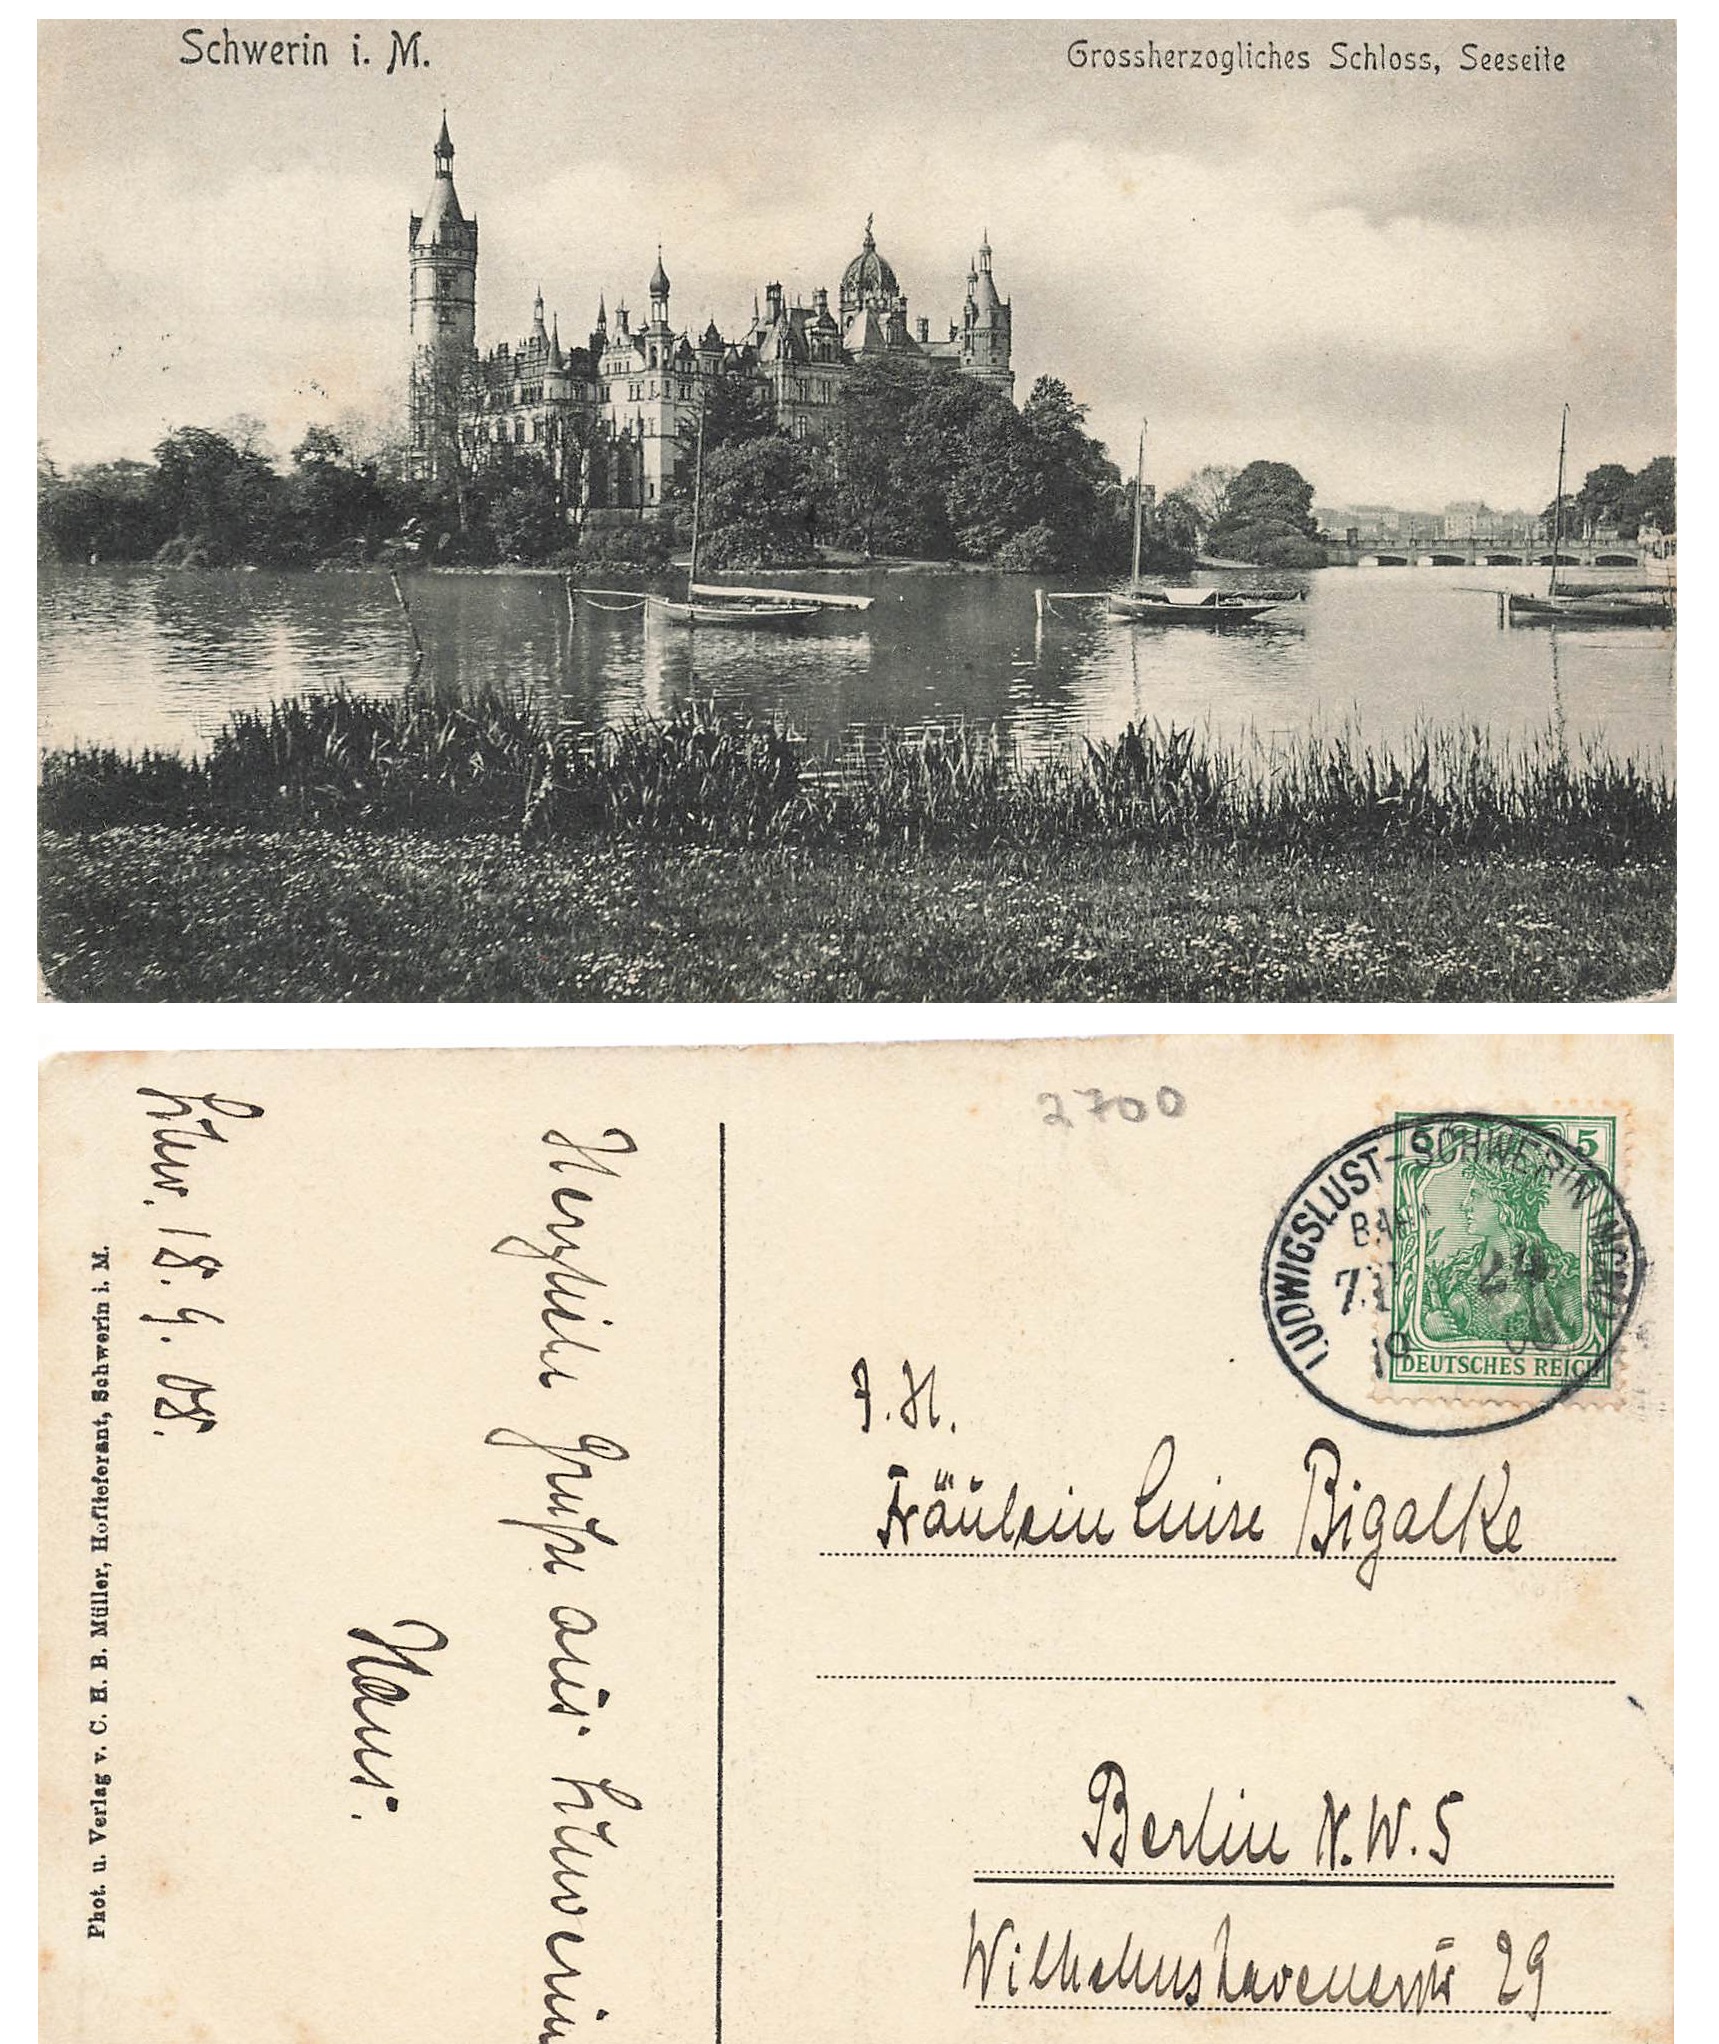 Schwerin i. M.
Grossherzogliches Schloss, Seeseite
2700
5 5
LUDWIGSLUST-SCHWERIN (MCKL)
BAHN
DEUTSCHES REICH
J. H.
Fräulein Luise Bigalke
Berlin N.W. 5
Wilhelmshavenerstr 29
Schw. 18. 9. 08.
Herzliche Grüße aus Schwerin
Hans.
Phot. u. Verlag v. C. H. B. Müller, Hoflieferant, Schwerin i. M.